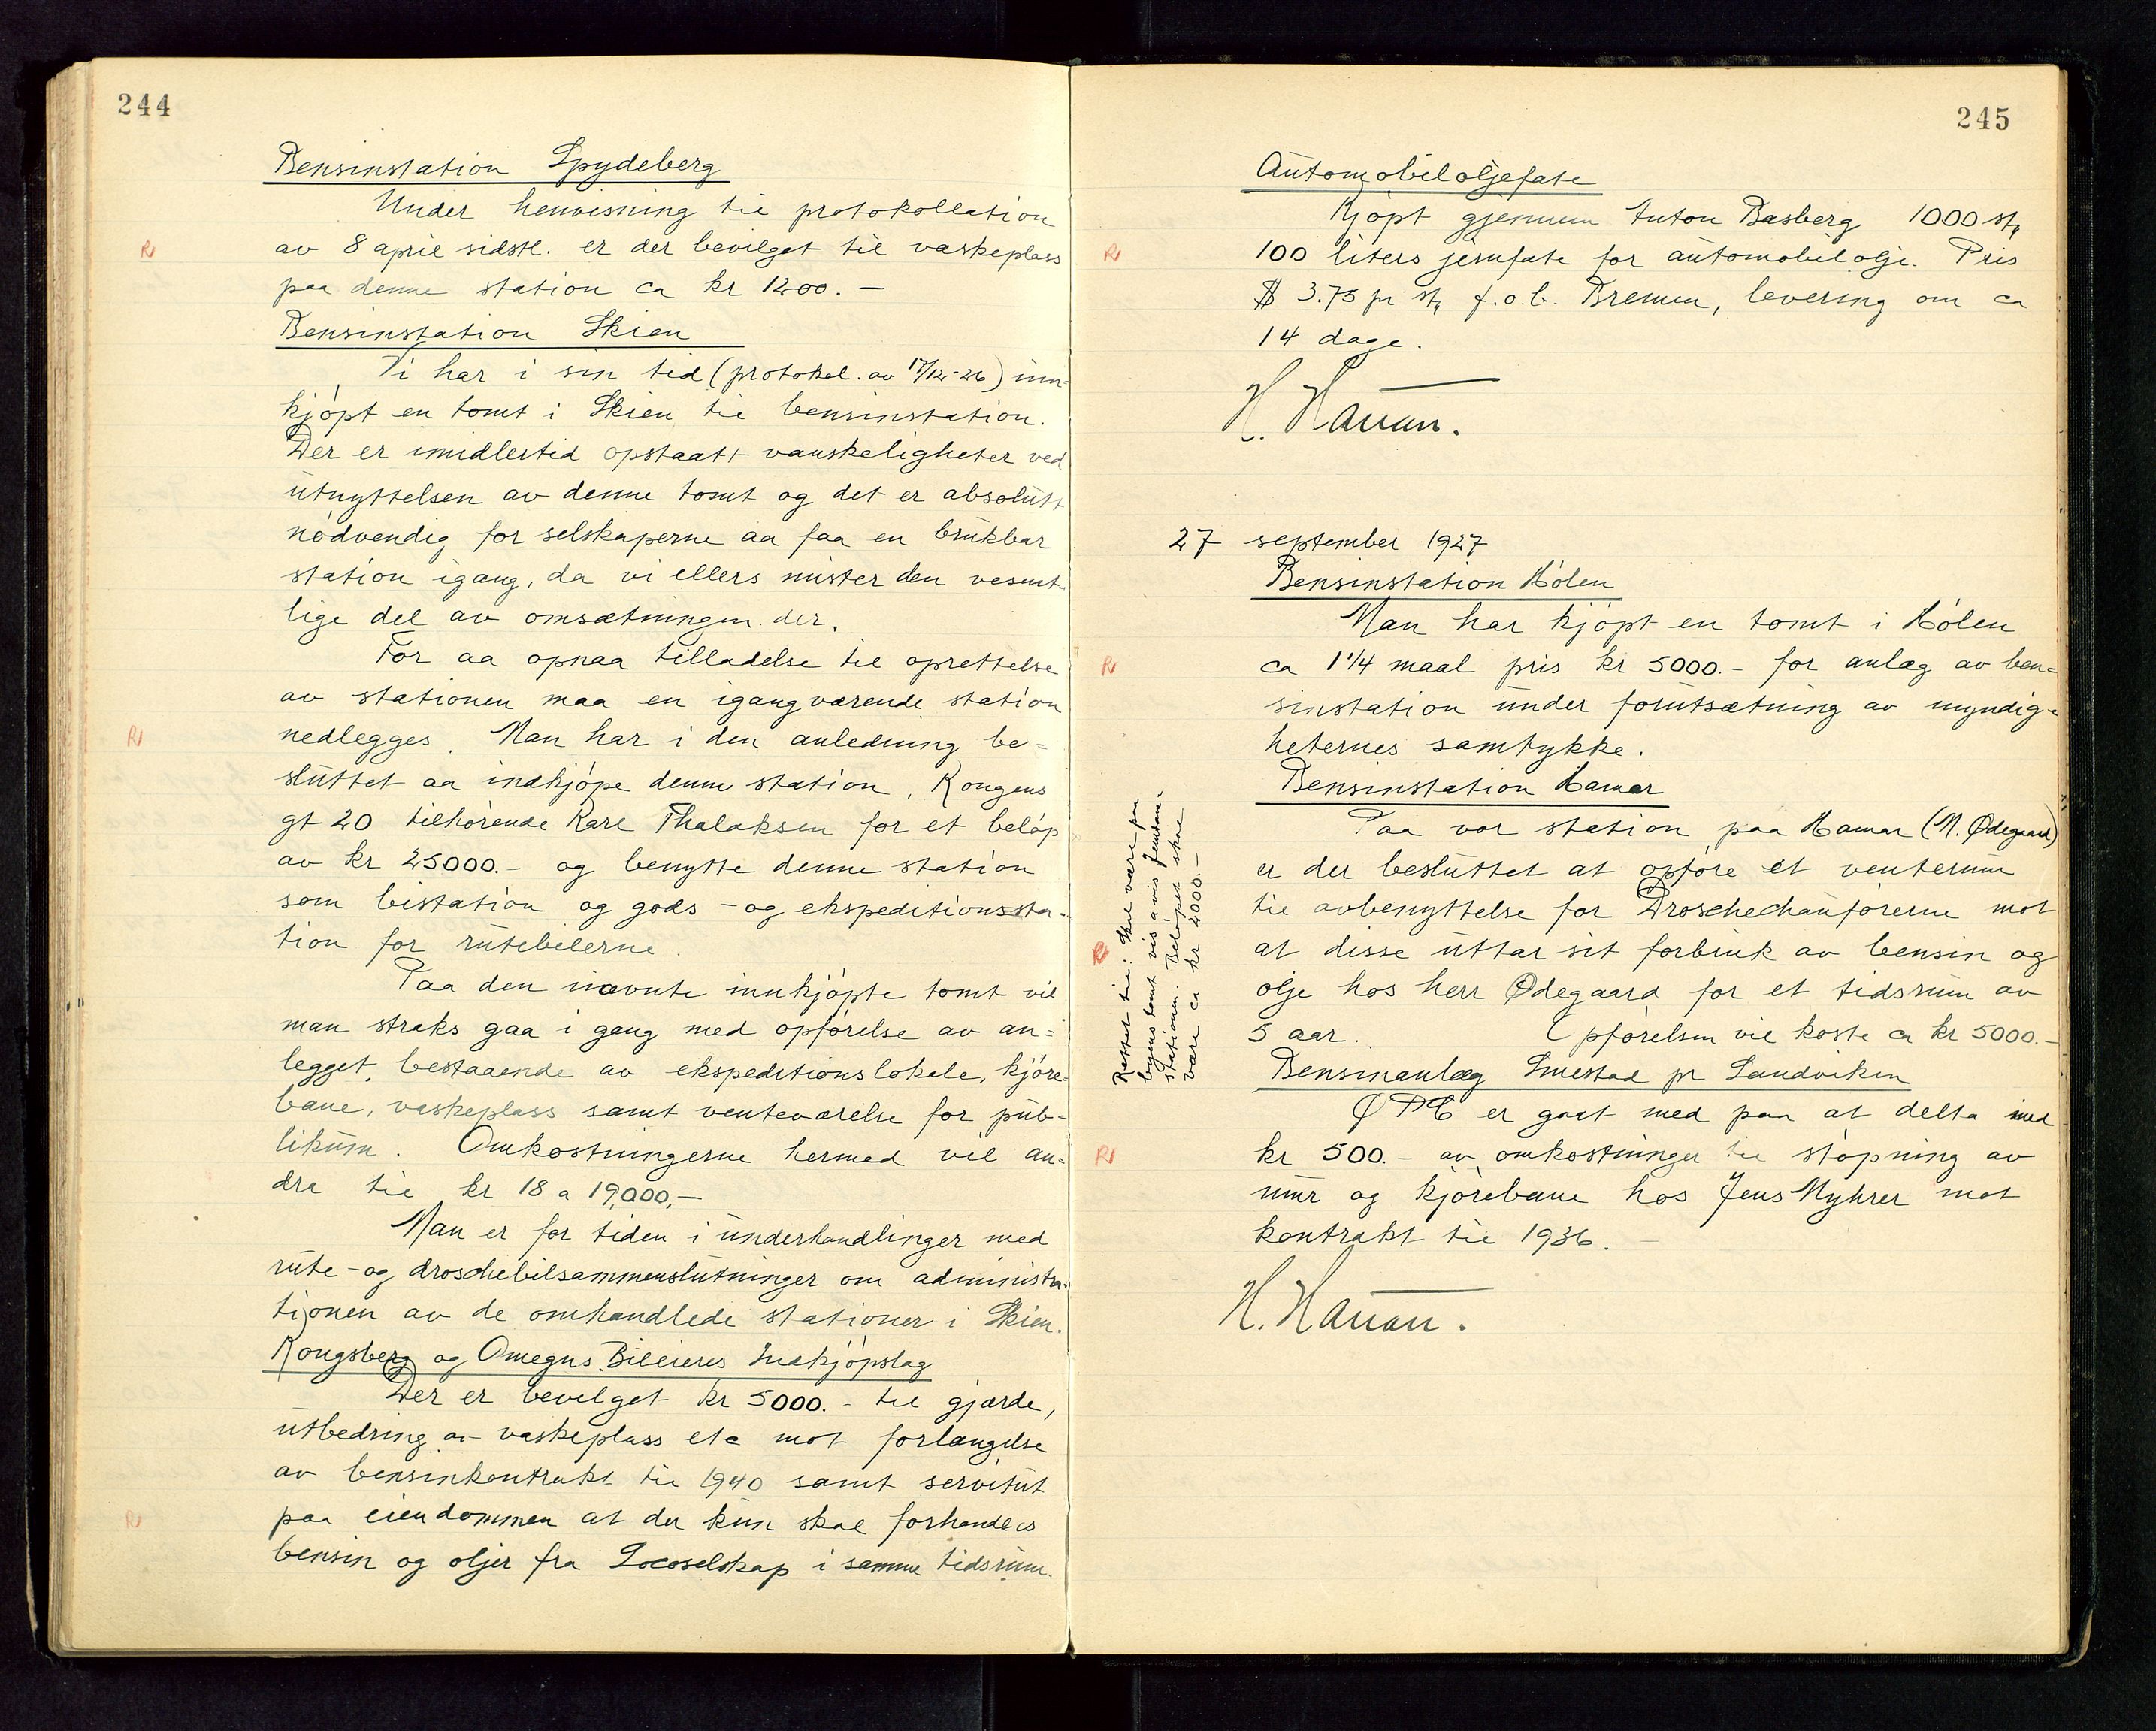 244
Bensinstation Spydeberg
Under henvisning til protokollation
av 8 april sidstl. er der bevilget til vaskeplass
paa denne station ca kr 1200.—
Bensinstation Skien
Vi har i sin tid (protokol. av 17/12-26) inn-
kjøpt en tomt i Skien til bensinstation.
Der er imidlertid opstaatt vanskeligheter ved
utnyttelsen av denne tomt og det er absolutt
nødvendig for selskaperne aa faa en brukbar
station igang, da vi ellers mister den vesent-
lige del av omsætningen der.
For aa opnaa tilladelse til oprettelse
av stationen maa en igangværende station
nedlegges. Man har i den anledning be=
sluttet aa indkjøpe denne station, Kongens
gt 20 tilhørende Karl Thalaksen for et beløp
av kr 25000.- og benytte denne station
som bistation og gods- og ekspeditionssta-
tion for rutebilerne.
Paa den nævnte innkjøpte tomt vil
man straks gaa i gang med opførelse av an=
legget, bestaaende av ekspeditionslokale, kjøre-
bane, vaskeplass samt venteværelse for pub=
likum. Omkostningerne hermed vil an=
dra til kr 18 a 19,000,-
Man er for tiden i underhandlinger med
rute- og droschebilsammenslutninger om administra-
tjonen av de omhandlede stationer i Skien.
Kongsberg og Omegns Bileieres Indkjøpslag
Der er bevilget kr 5000.- til gjærde,
utbedring av vaskeplass etc mot forlængelse
av bensinkontrakt til 1940 samt servitut
paa eiendommen at der kun skal forhandles
bensin og oljer fra Locoselskap i samme tidsrum.
245
Automobiloljefate
Kjøpt gjennem Anton Basberg 1000 stk
100 liters jernfate for automobilolje. Pris
$ 3.75 pr stk f.o.b. Bremen, levering om ca
14 dage.
H. Hansen.
27 september 1927
Bensinstation Hølen
Man har kjøpt en tomt i Hølen
ca 1 1/4 maal pris kr 5000.- for anlæg av ben=
sinstation under forutsætning av myndig=
heternes samtykke.
Bensinstation Hamar
Paa vor station paa Hamar (N. Ødegaard)
er der besluttet at opføre et venterum
til avbenyttelse for Droschechauførerne mot
at disse uttar sit forbruk av bensin og
olje hos herr Ødegaard for et tidsrum av
5 aar. Opførelsen vil koste ca kr 5000.-
Rettet til: Skal være paa
byens tomt vis a vis jernbane-
stationen. Beløpet skal
være ca kr 2000.-
Bensinanlæg Smestad pr Sandviken
ØPC er gaat med paa at delta med
kr 500.- av omkostninger til støpning av
mur og kjørebane hos Jens Myhrer mot
kontrakt til 1936.-
H. Hansen.